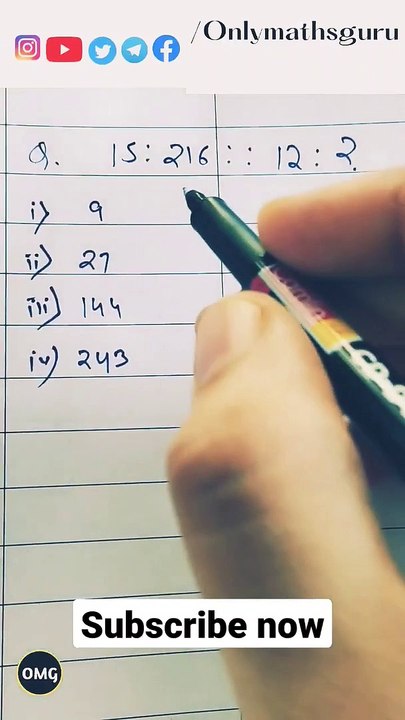 /Onlymathsguru
Q. 15 : 216 :: 12 : ?
i) 9
ii) 27
iii) 144
iv) 243
Subscribe now
OMG